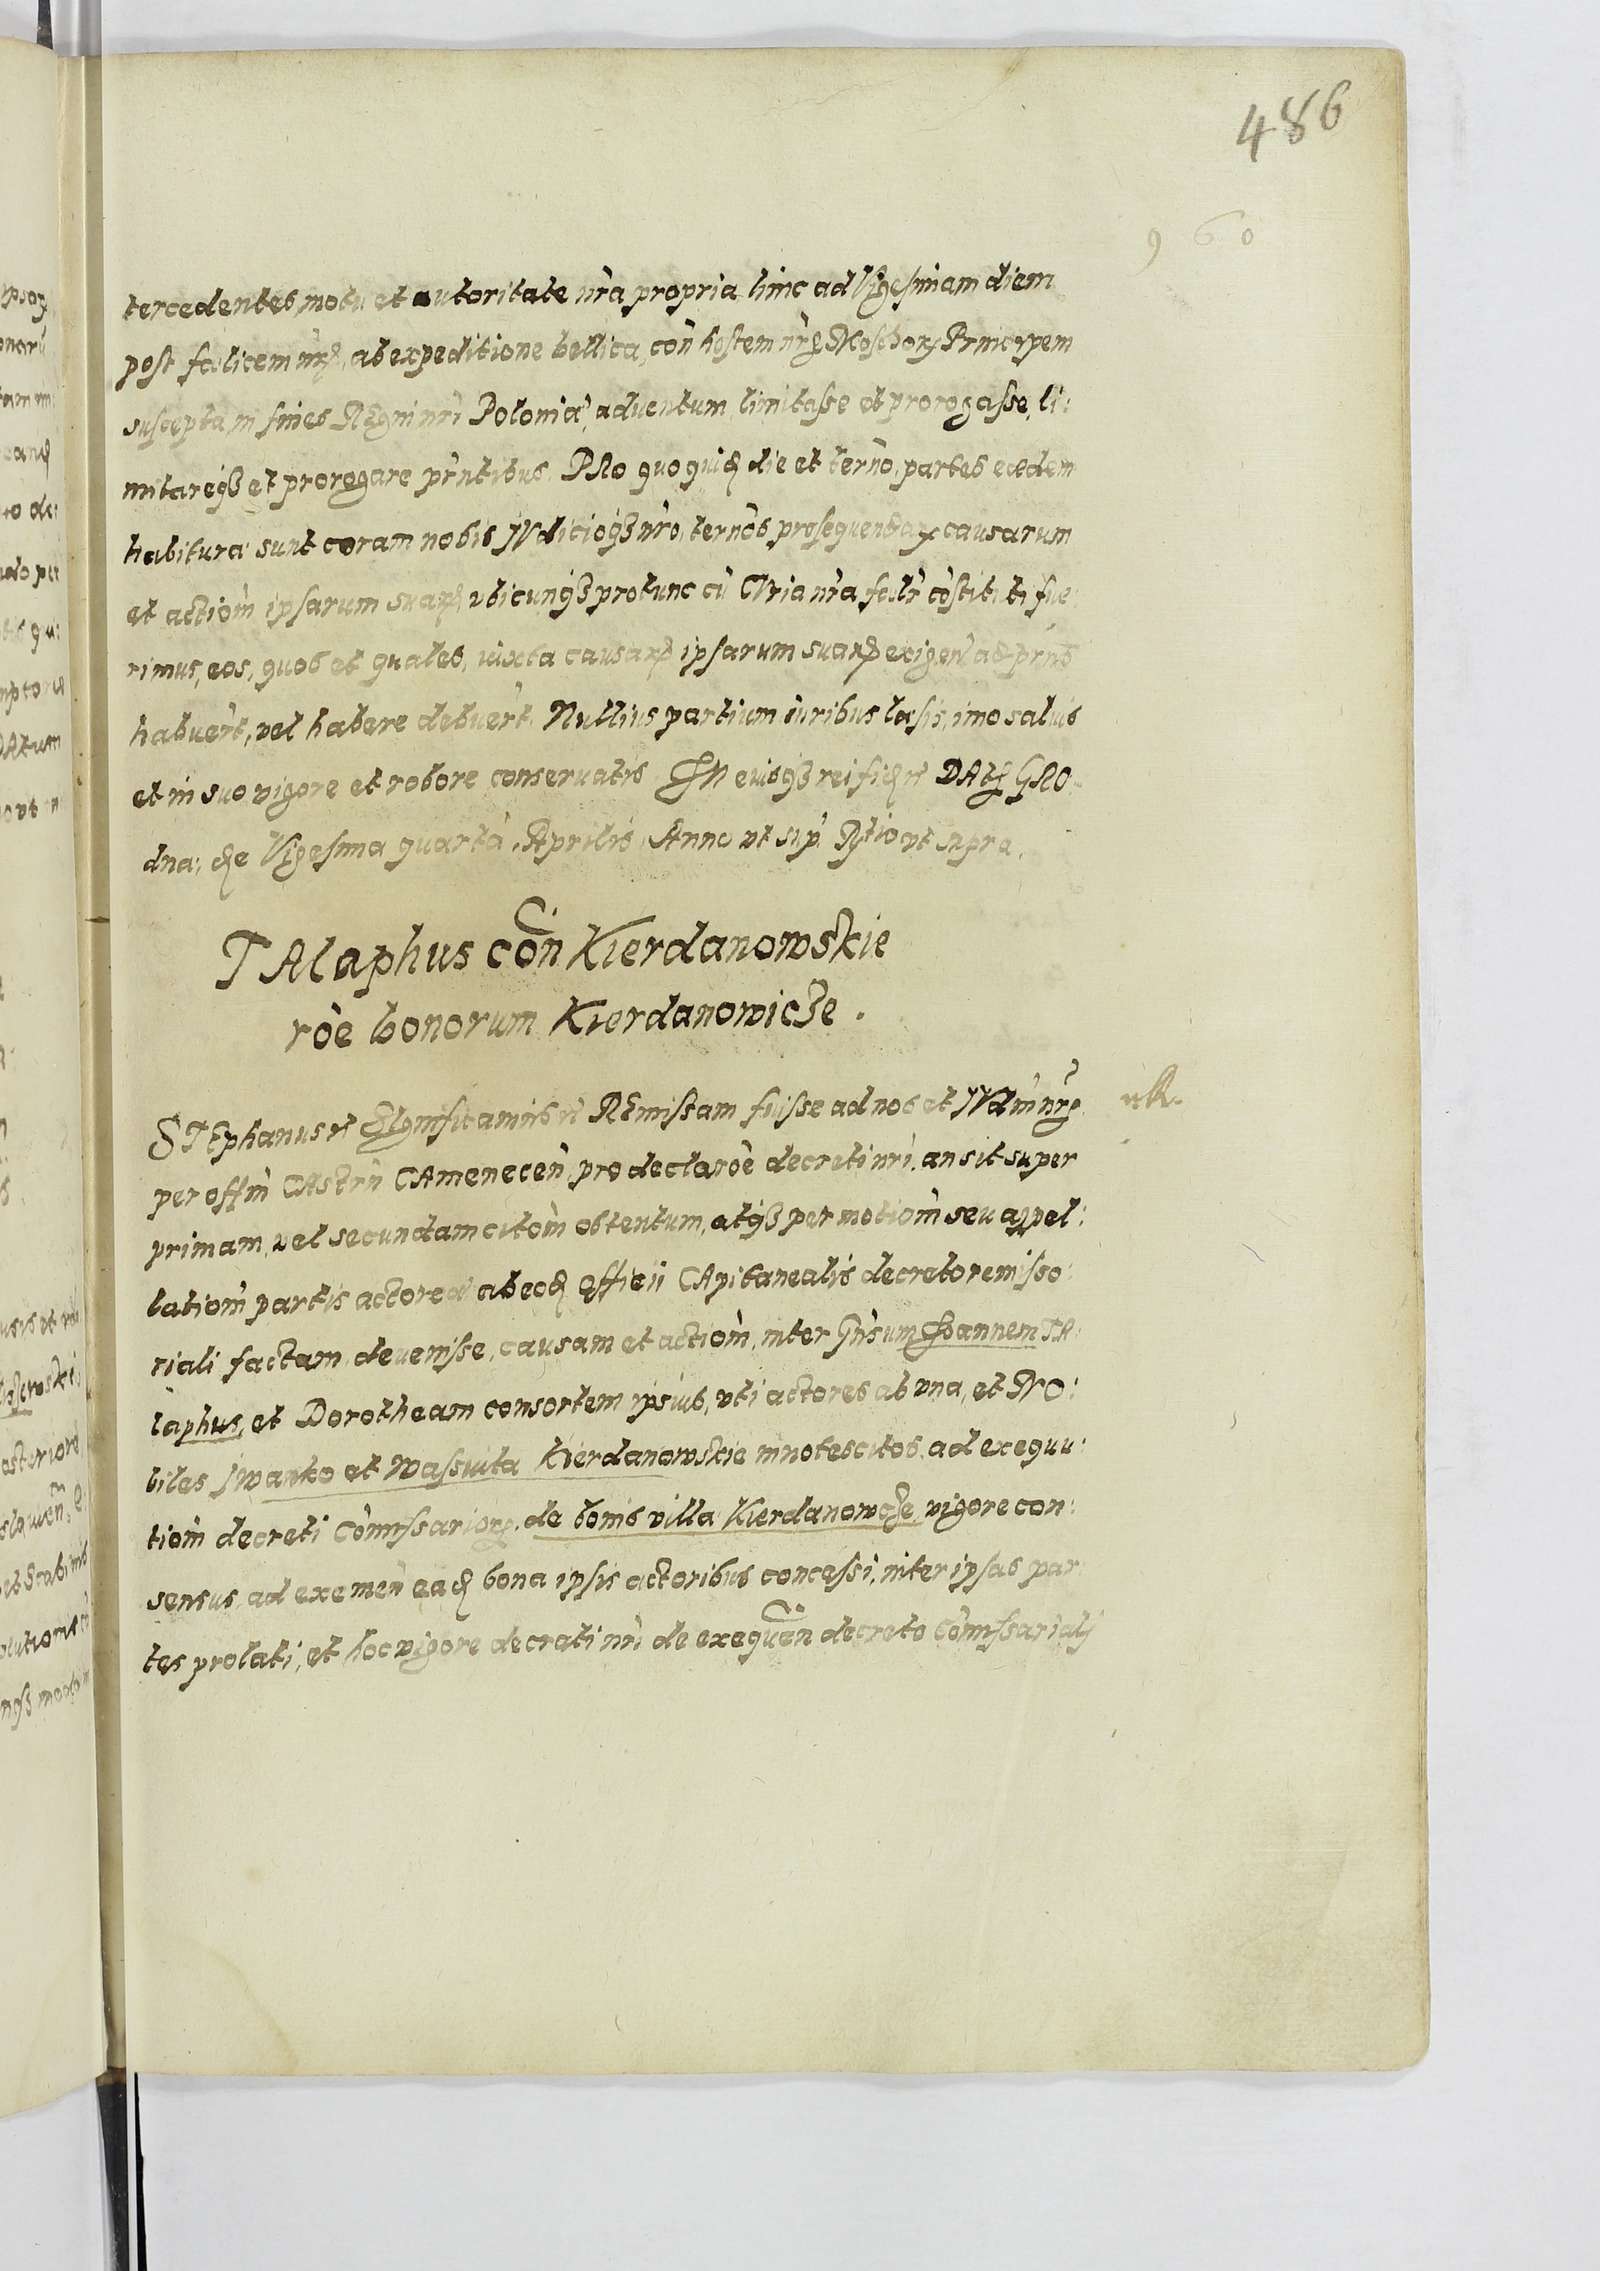 486
960
tercedentes, motu et autoritate nr̃a propria hinc ad Vigesimam diem
post felicem nr̃m, ab expeditione bellica, cõn hostem nr̃m Moschor. Principem
suscepta, in fines Regni nr̃i Poloniæ, aduentum limitasse et prorogasse, li:
mitareq3 et prorogare pr̃ntibus. PRo quoquid die et ter̃no, partes eædem
habituræ sunt coram nobis IVdicioq3 nr̃o, ter̃nos prosequendar. causarum
et actiom̃ ipsarum suar., vbicunq3 protunc cũ CVria nr̃a fælr̃ cõstituti fue
rimus, eos, quos et quales, iuxta causar. ipsarum suar. exigen̄ ad pr̃ns
habuer̃t, vel habere debuer̃t. Nullius partium iuribus læsis, imo saluis
et in suo vigore et robore conseruatis. IN cuius q3 rei fidem et DAt. GRO
dnæ, die Vigesima quarta, Aprilis, Anno vt sup̃. R̃tio vt supra.
TAlaphus cõn Kierdanowskie
rõe bonorum Kierdanowicze.
STEphanus et SIgnificamus et REmissam fuisse ad nos et IVdm̃ nr̃m
per offm̃ CAstrñ CAmenecen̄, pro declarõe decreti nr̃i, an sit super
primam, vel secundam citom̃ obtentum, atq3 per motiom̃ seu appel:
latiom̃ partis actoreæ ab eod. Officii CApitanealis decreto remisso:
riali factam, deuenisse, causam et actiom̃, inter Gñsum Ioannem TA:
laphus, et Dorotheam consortem ipsius, vti actores ab vna, et NO:
biles Iwanko et Wassiuta Kierdanowskie innotescitos, ad exequu:
tiom̃ decreti Cõmissarior. de bonis villæ Kierdanowcze, vigore con:
sensus, ad eximen̄ ead. bona ipsis actoribus concessi, inter ipsas par
tes prolati, et hoc vigore decreti nr̃i de exequen̄ decreto Cõmissarialj